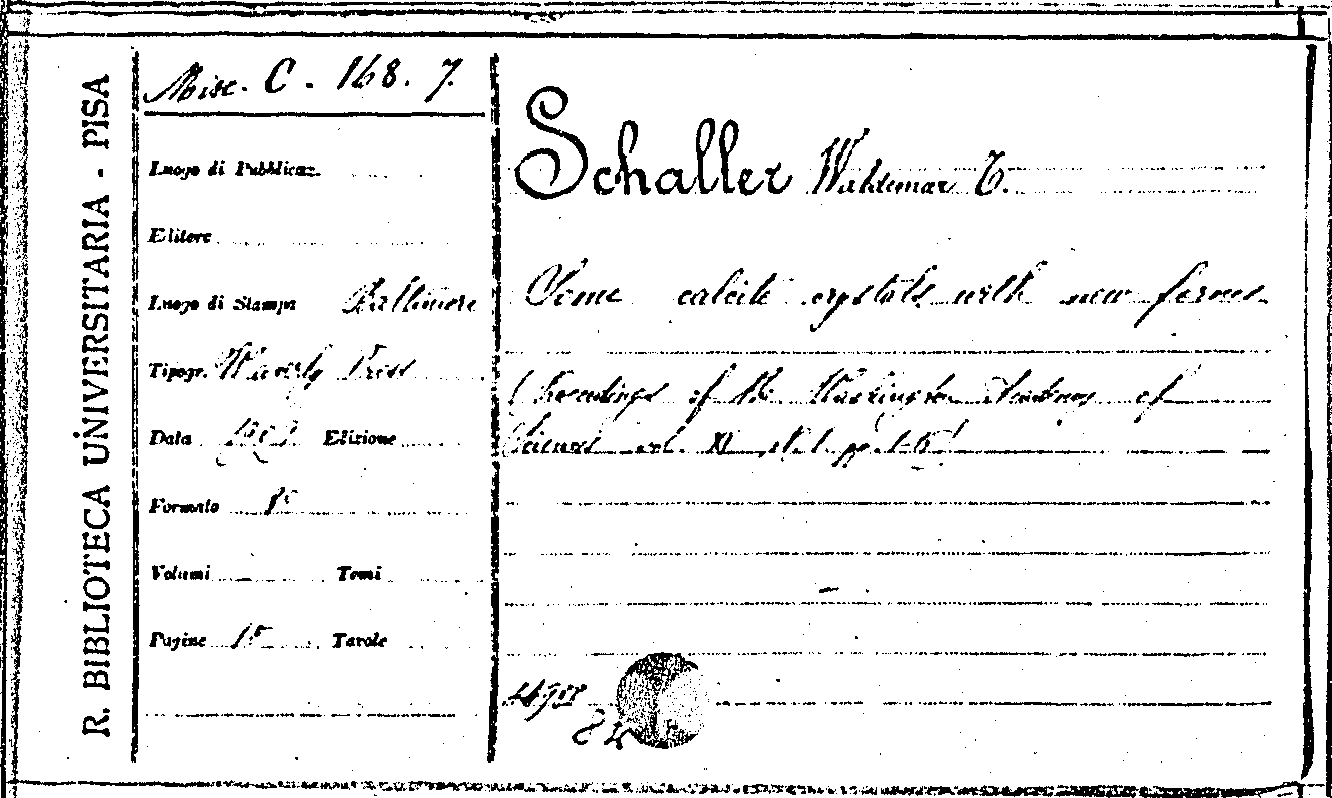 R. BIBLIOTECA UNIVERSITARIA - PISA
Misc. C. 168. 7.
Luogo di Pubblicaz.
Editore
Luogo di Stampa Baltimore
Tipogr. Waverly Press
Data Edizione
Formato 8°
Volumi Tomi
Pagine 15 Tavole
Schaller Waldemar T.
Some calcite crystals with new forms
(Proceedings of the Washington Academy of
Sciences vol. XI